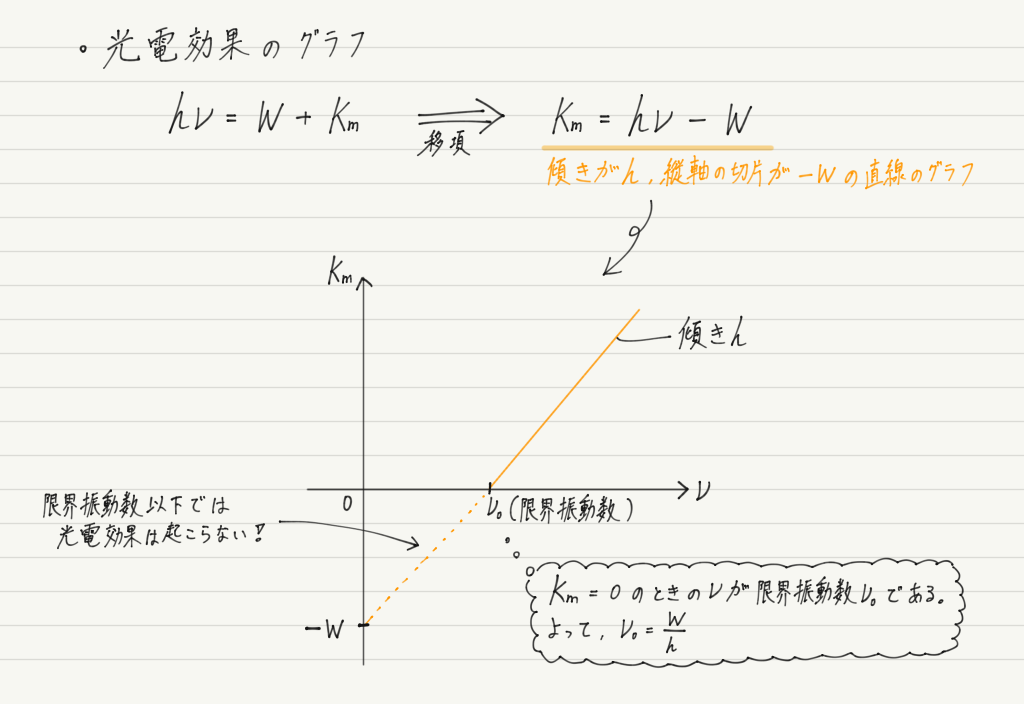 ・光電効果のグラフ
hν = W + Km
移項
Km = hν − W
傾きがh，縦軸の切片が−Wの直線のグラフ
Km
傾きh
0
ν
ν₀（限界振動数）
限界振動数以下では
光電効果は起こらない！
−W
Km = 0 のときのνが限界振動数ν₀である．
よって，ν₀ = W/h